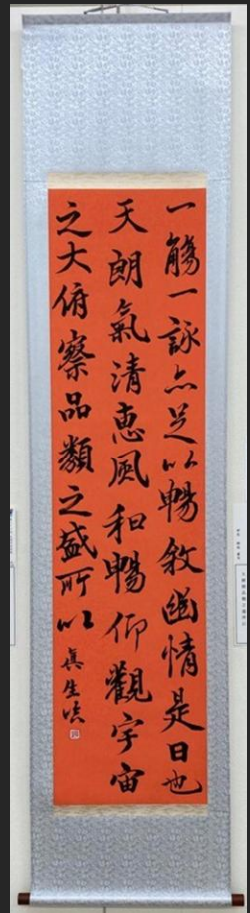 一觴一詠亦足以暢敘幽情是日也
天朗氣清惠風和暢仰觀宇宙
之大俯察品類之盛所以